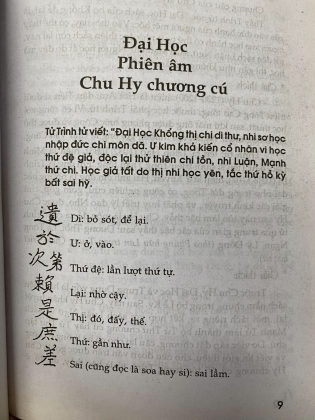 Đại Học
Phiên âm
Chu Hy chương cú
Tử Trình tử viết: "Đại Học Khổng thị chi di thư, nhi sơ học
nhập đức chi môn dã. Ư kim khả kiến cổ nhân vi học
thứ đệ giả, độc lại thử thiên chi tồn, nhi Luận, Mạnh
thứ chi. Học giả tất do thị nhi học yên, tắc thứ hồ kỳ
bất sai hỹ.
遺 Di: bỏ sót, để lại.
於 Ư: ở, vào.
次第 Thứ đệ: lần lượt thứ tự.
賴 Lại: nhờ cậy.
是 Thị: đó, đấy, thế.
庶 Thứ: gần như.
差 Sai (cũng đọc là soa hay si): sai lầm.
9